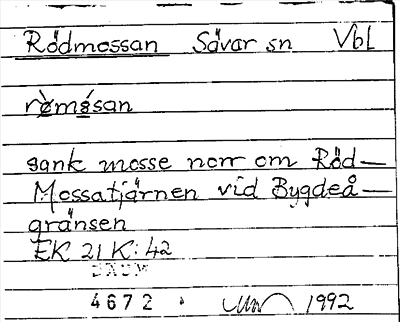 Rödmossan Sävar sn Vbl
rø̀mósan
sank mosse norr om Röd-
Mossatjärnen vid Bygdeå-
gränsen
EK 21 K: 42
DAUM
4672 1992